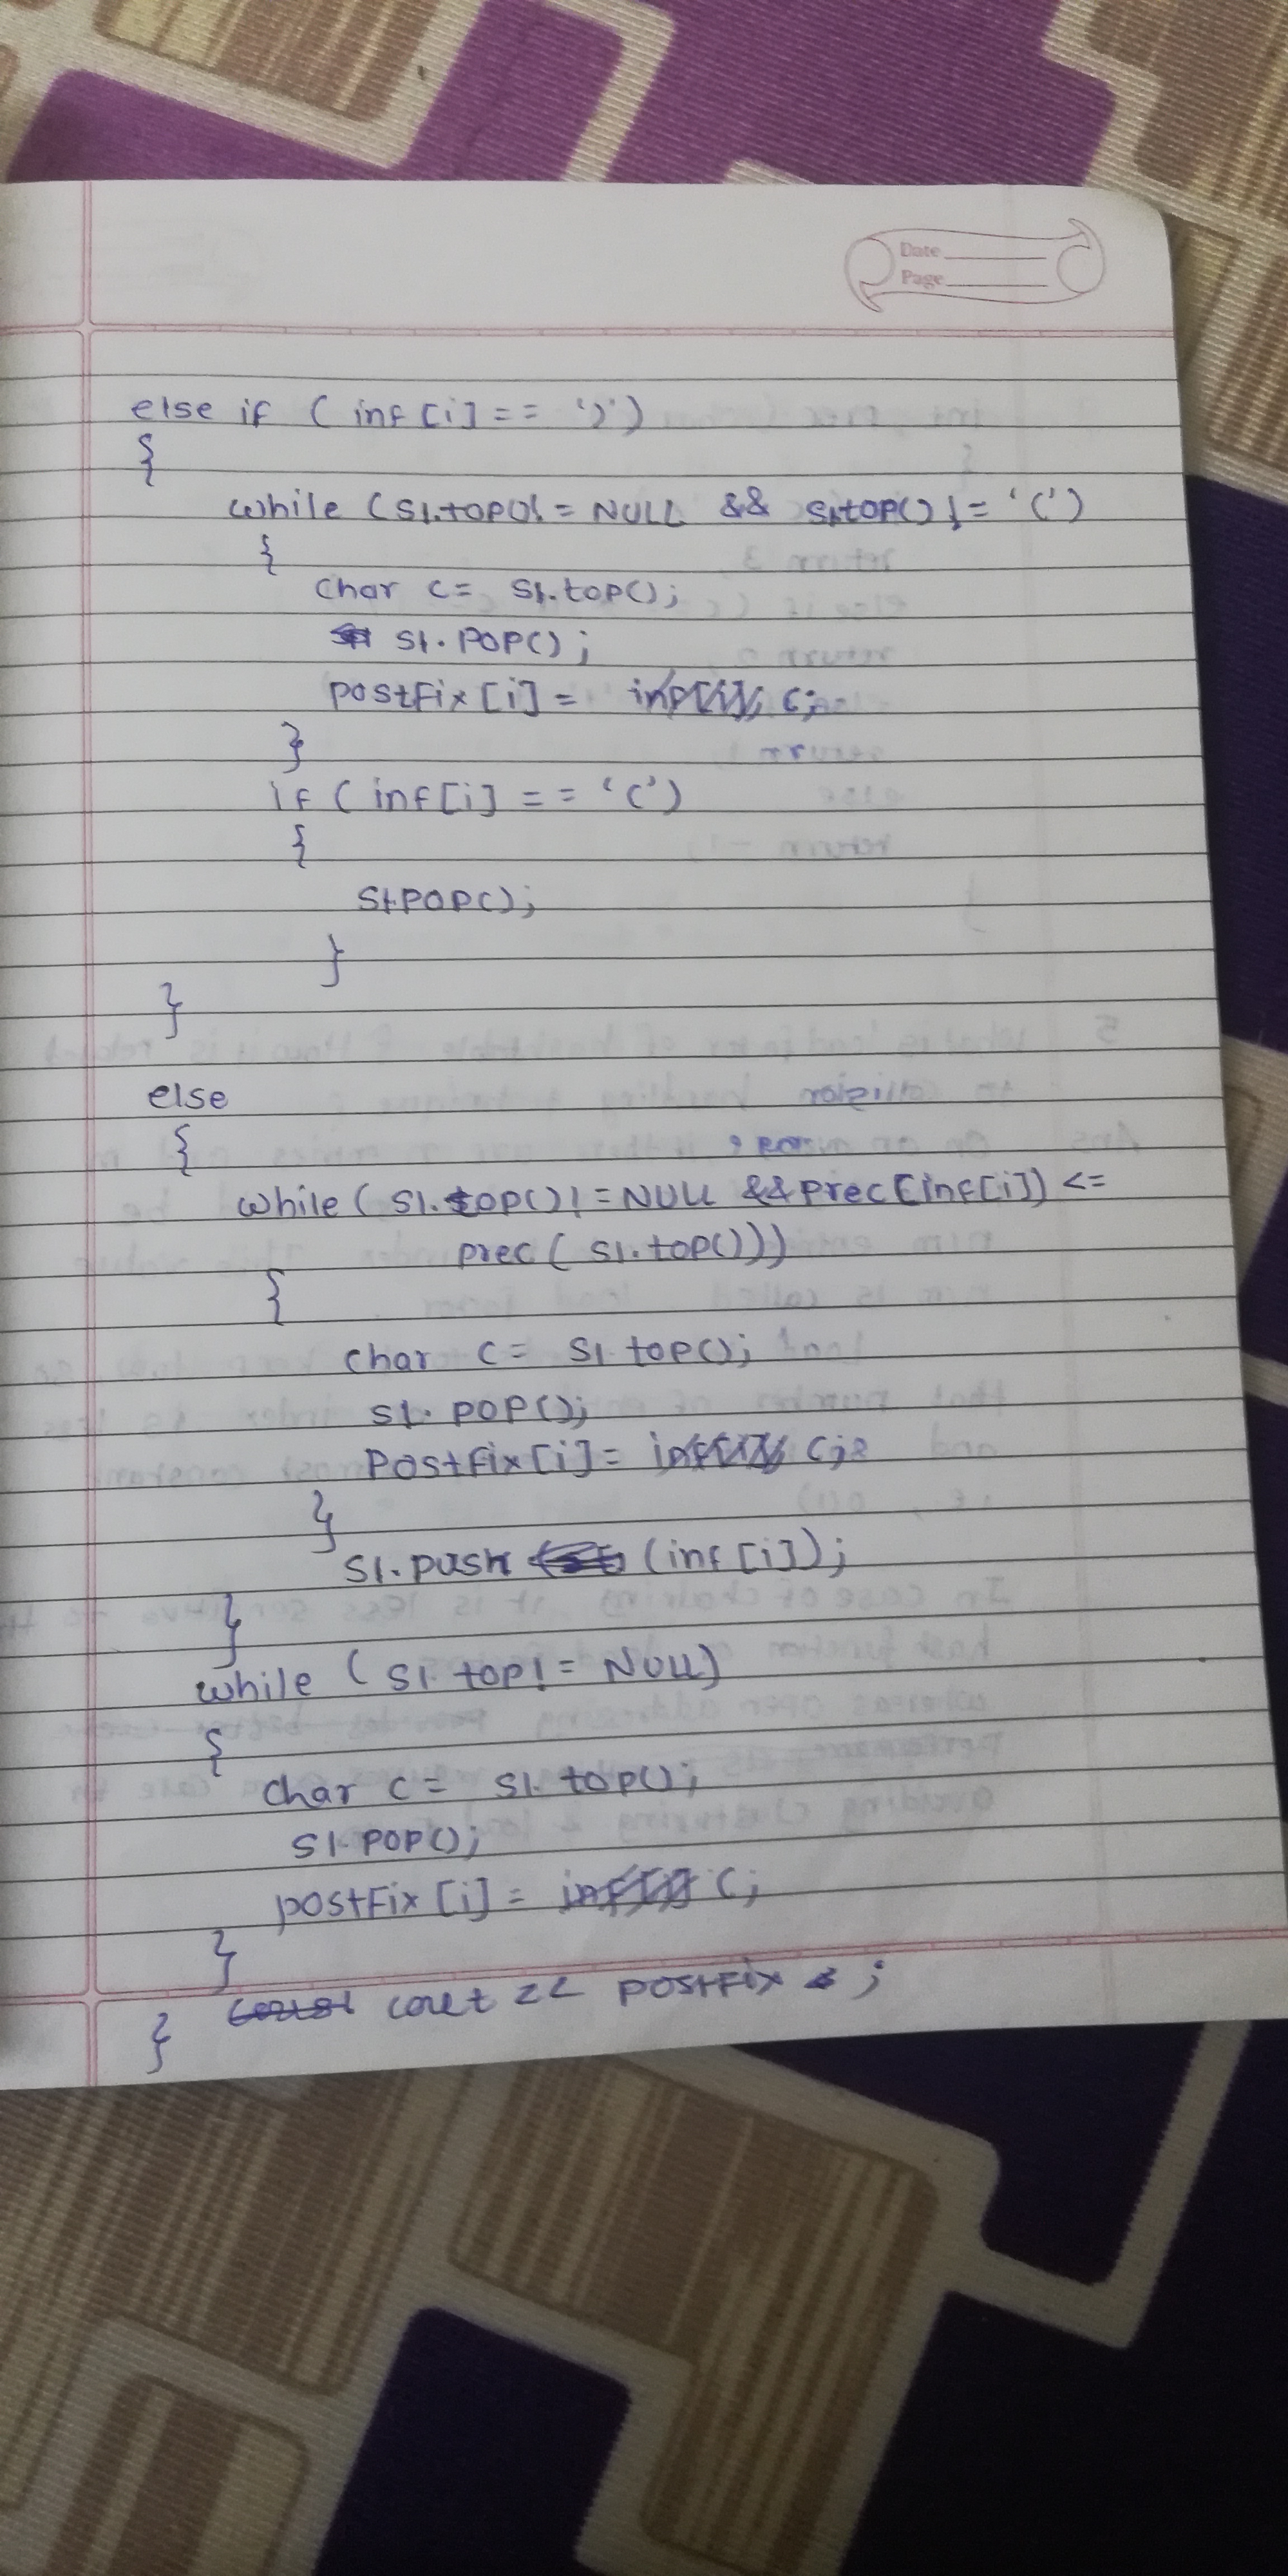 Date
Page
else if ( inf [i] == ')')
{
while (S1.top()!= NULL && S1.top() != '(')
{
char c= S1.top();
S1.pop();
postfix [i] = c;
}
if ( inf[i] == '(')
{
S1.pop();
}
}
else
{
while ( S1.top()!=NULL &&prec[inf[i]) <=
prec ( S1.top()))
{
char c= S1 top();
S1. pop();
Postfix[i]= c;
}
S1.push (inf[i]);
}
while ( S1. top!= NULL)
{
char c= S1. top();
S1.pop();
postfix [i] = c;
}
cout << postfix ;
}